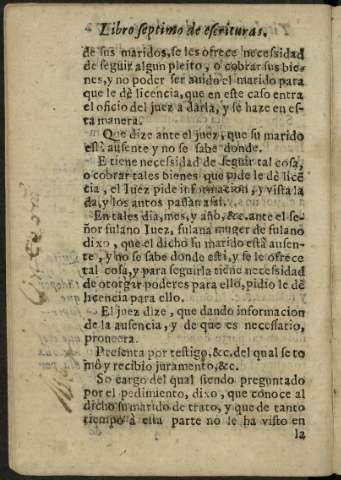 Libro septimo de escrituras.
de sus maridos, se les ofrece necessidad
de seguir algun pleito, o cobrar sus bie-
nes, y no poder ser auido el marido para
que le dè licencia, que en este caso entra
el oficio del juez a darla, y se haze en es-
ta manera.
Que dize ante el juez, que su marido
està ausente y no se sabe donde.
E tiene necessidad de seguir tal cosa,
o cobrar tales bienes que pide le dè licē
cia, el Iuez pide informacion, y vista la
da, y los autos passan assi.
En tales dia, mes, y año, &c. ante el se-
ñor fulano Iuez, fulana muger de fulano
dixo, que el dicho su marido està ausen-
te, y no se sabe donde està, y se le ofrece
tal cosa, y para seguirla tiene necessidad
de otorgar poderes para ello, pidio le dè
licencia para ello.
El juez dize, que dando informacion
de la ausencia, y de que es necessario,
proueera.
Presenta por testigo, &c. del qual se to
mò y recibio juramento, &c.
So cargo del qual siendo preguntado
por el pedimiento, dixo, que conoce al
dicho su marido de trato, y que de tanto
tiempo à esta parte no le ha visto en
la